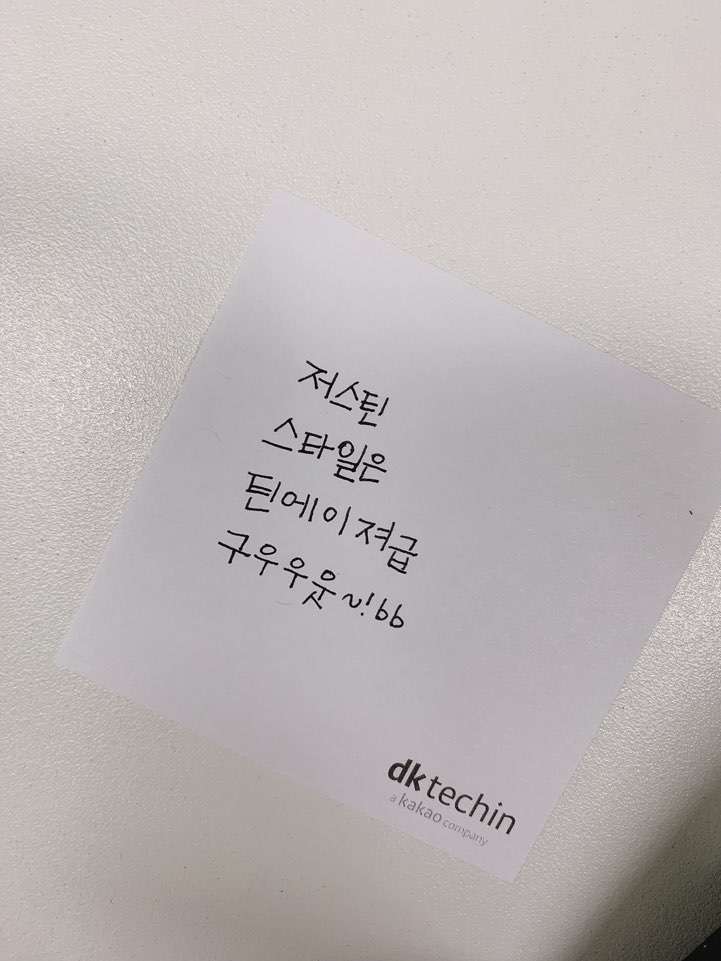 저스틴
스타일은
틴에이져급
구우우웃~!bb
dktechin
a kakao company